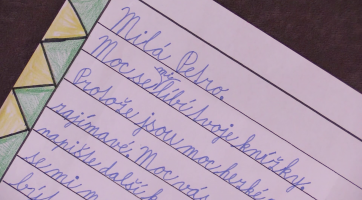 Milá Petro.
Moc se mi líbí tvoje knížky.
Protože jsou moc hezké
zajímavé. Moc vás
napište další k
se mi m